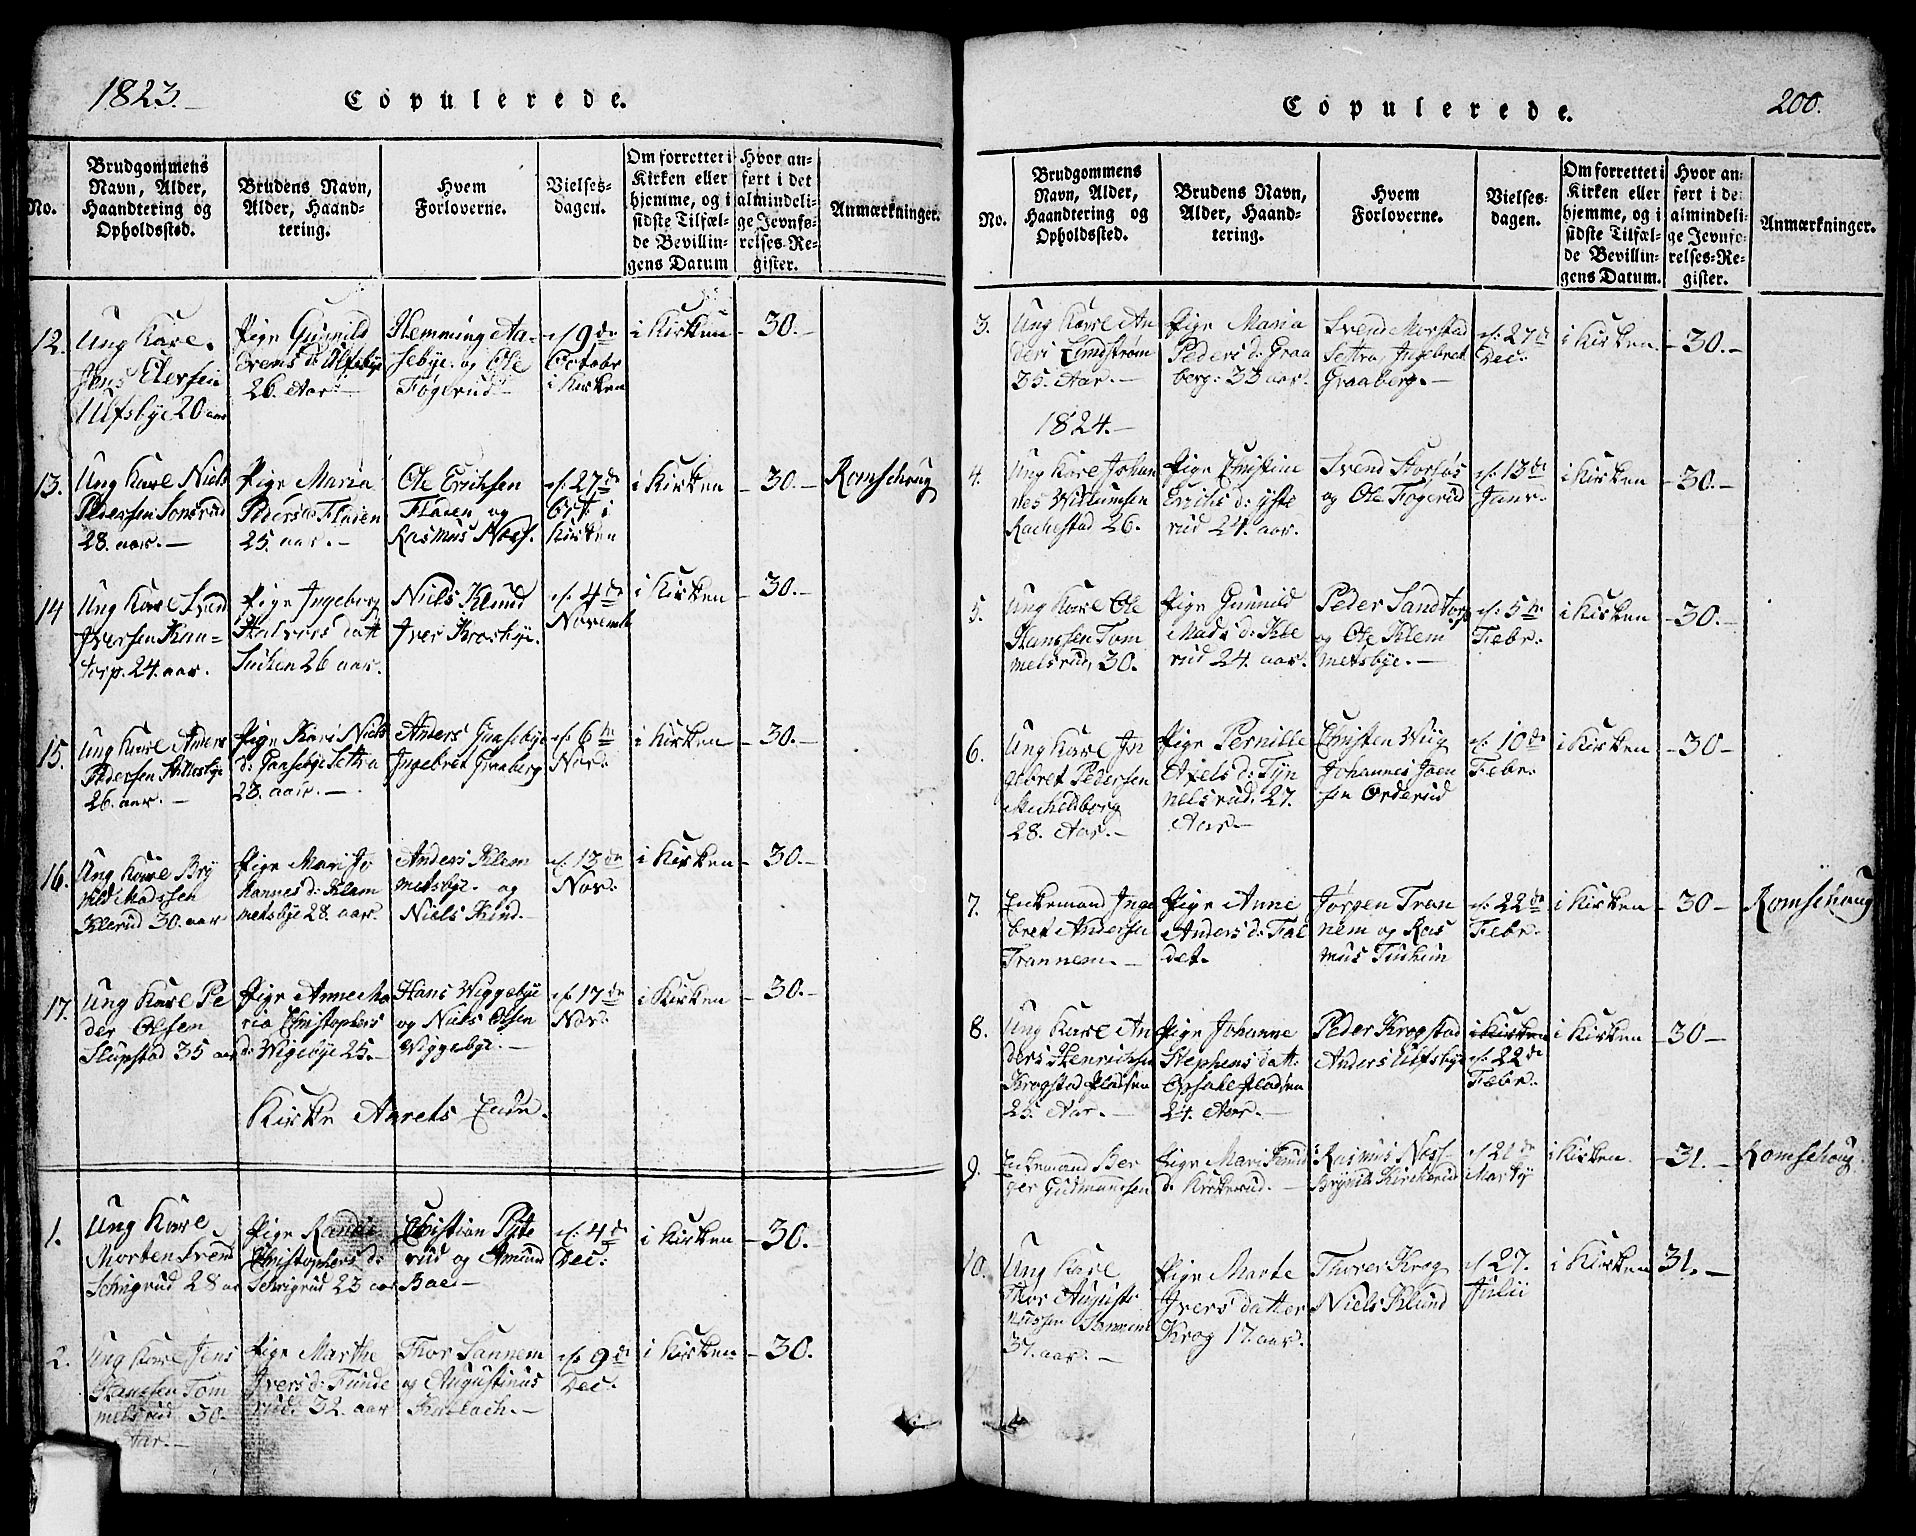 1823.
Copulerede.
No.
Brudgommens
Navn, Alder,
Haandtering og
Opholdssted.
Brudens Navn,
Alder, Haand-
tering.
Hvem
Forloverne.
Vielses-
dagen.
Om forrettet i
Kirken eller
hjemme, og i
sidste Tilfæl-
de Bevillin-
gens Datum
Hvor an-
ført i det
almindeli-
ge Jevnfø-
relses-Re-
gister.
Anmærkninger.
12.
Ung Karl
Jens Elersen
Ulfsbye 20 aar
Pige Gunnild
Svens d: Ulfsbye
26. Aar.
Flemming Aa-
sebye. og Ole
Fogerud
d. 9de
October
i Kirken
i Kirken
30.
13.
Ung Karl Niels
Pedersen Sonsrud
28. aar.
Pige Maria
Peders d: Flaten
25. aar.
Ole Erichsen
Flaten og
Rasmus Noss.
d. 27de
Oct. i
Kirken
i Kirken
30.
Romsehoug
14
Ung Karl Svend
Iversen Kan-
torp. 24. aar.
Pige Ingeborg
Halvors datt
26 aar.
Niels Klund
Iver Krosbye.
d. 4de
Novemb
i Kirken
30.
15.
Ung Karl Anders
Pedersen Hillesbye
26. aar.
Pige Kari Niels
d: Gaasebye Sætra
28. aar.
Anders Gaasebye
Ingebret Graaberg
d. 6te
Nov:
i Kirken
30.
16.
Ung Karl Bry
nild Madssen
Klerud 30. aar
Pige Mari Jo
hannes d: Klem
metsbye 28. aar.
Anders Klem
metsbye. og
Niels Kind.
d. 13de
Nov:
i Kirken
30.
17.
Ung Karl Pe
der Olsen
Slupstad 35 aar
Pige Anne Ma
ria Christophers
d: Wigebye 25.
Hans Wiggebye
og Niels Olsen
Wiggebye.
d. 17de
Nov:
i Kirken
30.
Kirke Aarets Ende.
1.
Ung Karl
Morten Svend
Schrigrud 28 aar
Pige Randi
Christophers d:
Schrigrud 23 aar
Christian Pyte
rud og Amund
Bae
d. 4de
Dec:
i Kirken
30.
2.
Ung Karl Jens
Hanssen Tom
melsrud 30.
Aar.
Pige Marthe
Ivers d: Funde
rud. 32. aar
Thor Sannem
og Augustinus
Kallach.
d. 9de
Dec:
i Kirken
30.
Copulerede.
200.
No.
Brudgommens
Navn, Alder,
Haandtering og
Opholdssted.
Brudens Navn,
Alder, Haand-
tering.
Hvem
Forloverne.
Vielses-
dagen.
Om forrettet i
Kirken eller
hjemme, og i
sidste Tilfæl-
de Bevillin-
gens Datum.
Hvor an-
ført i de
almindeli-
ge Jevnfø-
relses-Re-
gister.
Anmærkninger.
3.
Ung Karl An
ders Lindstrøm
35. Aar.
Pige Maria
Peders d: Graa
berg: 33 aar.
Svend Morstad
Sætra Ingebret
Graaberg.
d. 27de
Dec:
i Kirken
30.
1824.
4.
Ung Karl Johan
nes Willumsen
Rachestad 26.
Pige Christine
Erichs d: yste
rud 24. aar.
Svend Korsøs
og Ole Fogerud
d. 13de
Janr.
i Kirken
30.
5.
Ung Karl Ole
Hanssen Tom
melsrud, 30.
Pige Gunnild
Mads d: Kle
rud 24. aar.
Peder Sandtorp
og Ole Klem
metsbye.
d. 5te
Febr:
i Kirken
30.
6.
Ung Karl In
gebret Pedersen
Michelsborg
28. Aar.
Pige Pernille
Axels d: Tyn
nelsrud. 27.
Aar.
Christen Wiig
Johannes Joen
sen Orderud
d. 10de
Febr:
i Kirken
30
7.
Enkemand Inge
bret Andersen
Trannem.
Pige Anne
Anders d: Fal
det.
Jørgen Tran
nem og Ras
mus Tuehun
d. 22de
Febr.
i Kirken
30
Romsehoug
8.
Ung Karl An
ders Henrichsen
Krogstad pladsen
25. Aar.
Pige Johanne
Stephens datt.
Opsahl pladsen
24. Aar.
Peder Krogstad
Anders Ulfsbye
i Kirken
d. 22de
Febr.
i Kirken
30
9.
Enkemand Ber
ger Gudmundsen
Pige Mari Knud
d: Kirkerud.
Rasmus Noss
Brynild Kirkerud
d 21de
Marty
i Kirken.
31.
Romsehoug.
10.
Ung Karl
Thor Augusti
nussen Sannem
37. aar.
Pige Marte
Ivers datter
Krog 17. aar.
Thorer Krog
Niels Klund
d 27.
Julii
i Kirken
31.